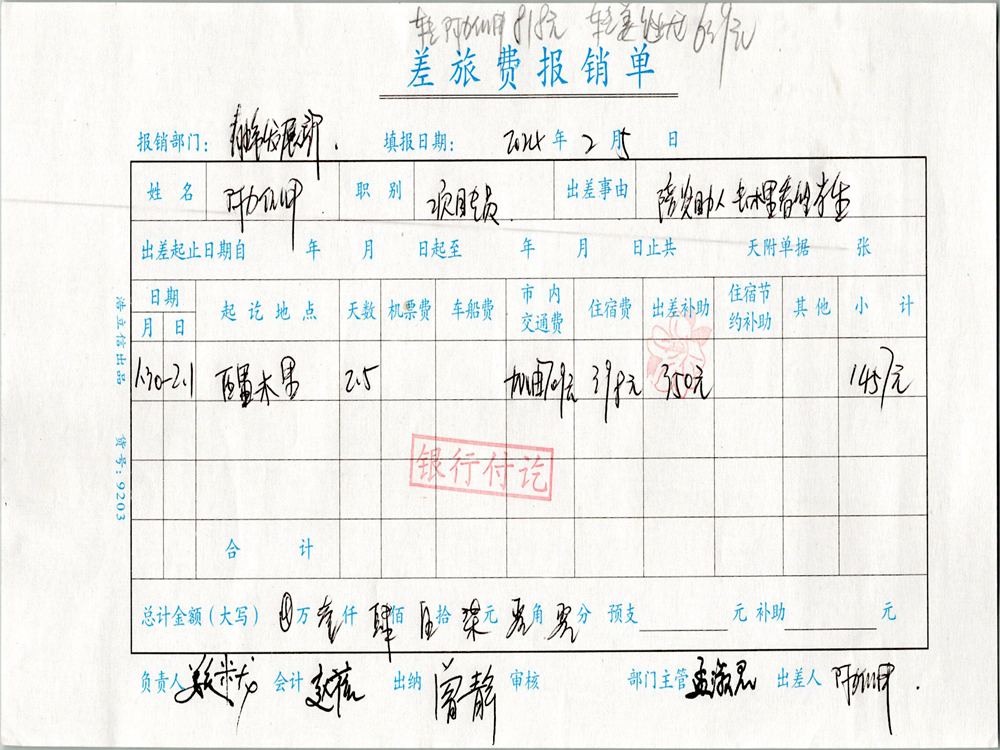 818元 639元
差旅费报销单
报销部门: 填报日期: 2024年2月5日
姓名 阿力们甲 职别 项目专员 出差事由 陪资助人去木里看望学生
出差起止日期自 年 月 日起至 年 月 日止共 天附单据 张
日期 月 日 起讫地点 天数 机票费 车船费 市内交通费 住宿费 出差补助 住宿节约补助 其他 小计
1.30-2.1 木里 2.5 加油709元 398元 350元 1457元
银行付讫
合计
总计金额(大写) 万壹仟肆佰伍拾柒元零角零分 预支 元 补助 元
负责人 会计 出纳 曾静 审核 部门主管 孟淑思 出差人
浩立信出品 货号:9203